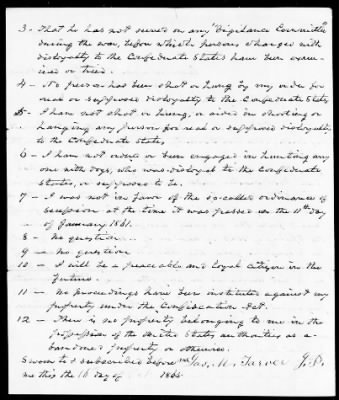 3 - That he has not served on any Vigilance Committee
during the war, before which persons charged with
disloyalty to the Confederate States have been exam-
ined or tried.
4 - No person has been shot or hung by my order for
real or supposed disloyalty to the Confederate States
5 - I have not shot or hung, or aided in shooting or
hanging any person for real or supposed disloyalty
to the Confederate States,
6 - I have not ordered or been engaged in hunting any
one with dogs, who was disloyal to the Confederate
States, or supposed to be.
7 - I was not in favor of the so-called ordinance of
secession at the time it was passed on the 11th day
of January 1861.
8 - No question...
9 - No question
10 - I will be a peaceable and loyal citizen in the
future.
11 - No proceedings have been instituted against my
property under the Confiscation Act.
12 - There is no property belonging to me in the
possession of the United States authorities as a-
bandoned property or otherwise.
Sworn to & subscribed before Jas. M. Tarver J.P.
me this the 16 day of 1865